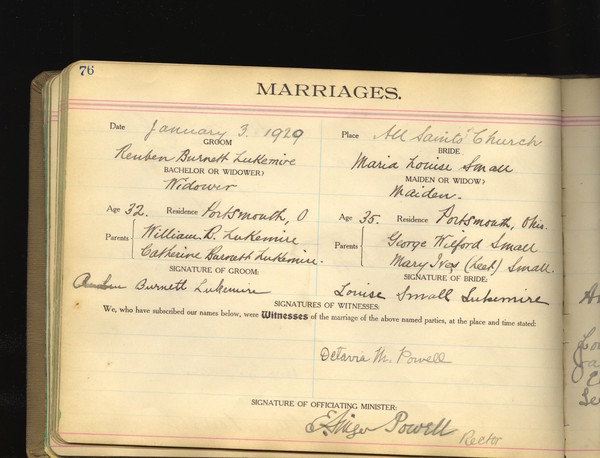 76
MARRIAGES.
Date January 3. 1929 Place All Saints' Church
GROOM BRIDE
Reuben Burnett Lukemire Maria Louise Small
BACHELOR OR WIDOWER? MAIDEN OR WIDOW?
Widower Maiden.
Age 32. Residence Portsmouth, O Age 35. Residence Portsmouth, Ohio.
Parents William B. Lukemire Parents George Wilford Small
Catherine Burnett Lukemire. Mary (Peel) Small.
SIGNATURE OF GROOM: SIGNATURE OF BRIDE:
Burnett Lukemire Louise Small Lukemire
SIGNATURES OF WITNESSES:
We, who have subscribed our names below, were Witnesses of the marriage of the above named parties, at the place and time stated:
Octavia M. Powell
SIGNATURE OF OFFICIATING MINISTER:
Powell Rector